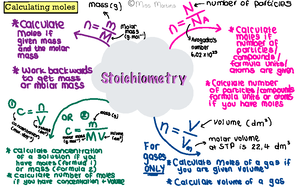 Calculating moles
* Calculate
moles if
given mass
and the molar
mass
* Work backwards
to get mass
or molar mass
mass (g)
n = m/M
molar
mass
(g mol⁻¹)
© Miss Misiara
n = N/NA
number of particles
Avogadro's
number
6.02 x 10²³
* Calculate
moles if
number of
particles/
compounds/
formula units/
atoms are given
* Calculate number
of particles/compounds/
formula units or atoms
if you have moles
Stoichiometry
① C = n/V
OR ② C = m/MV
mass (g)
* Calculate concentration
of a solution if you
have moles (formula 1)
or mass (formula 2)
* Calculate number of moles
if you have concentration + volume
For
gases
ONLY
n = V/Vm
Volume (dm³)
molar volume
at STP is 22,4 dm³
* Calculate moles of a gas if
you are given volume
* Calculate volume of a gas